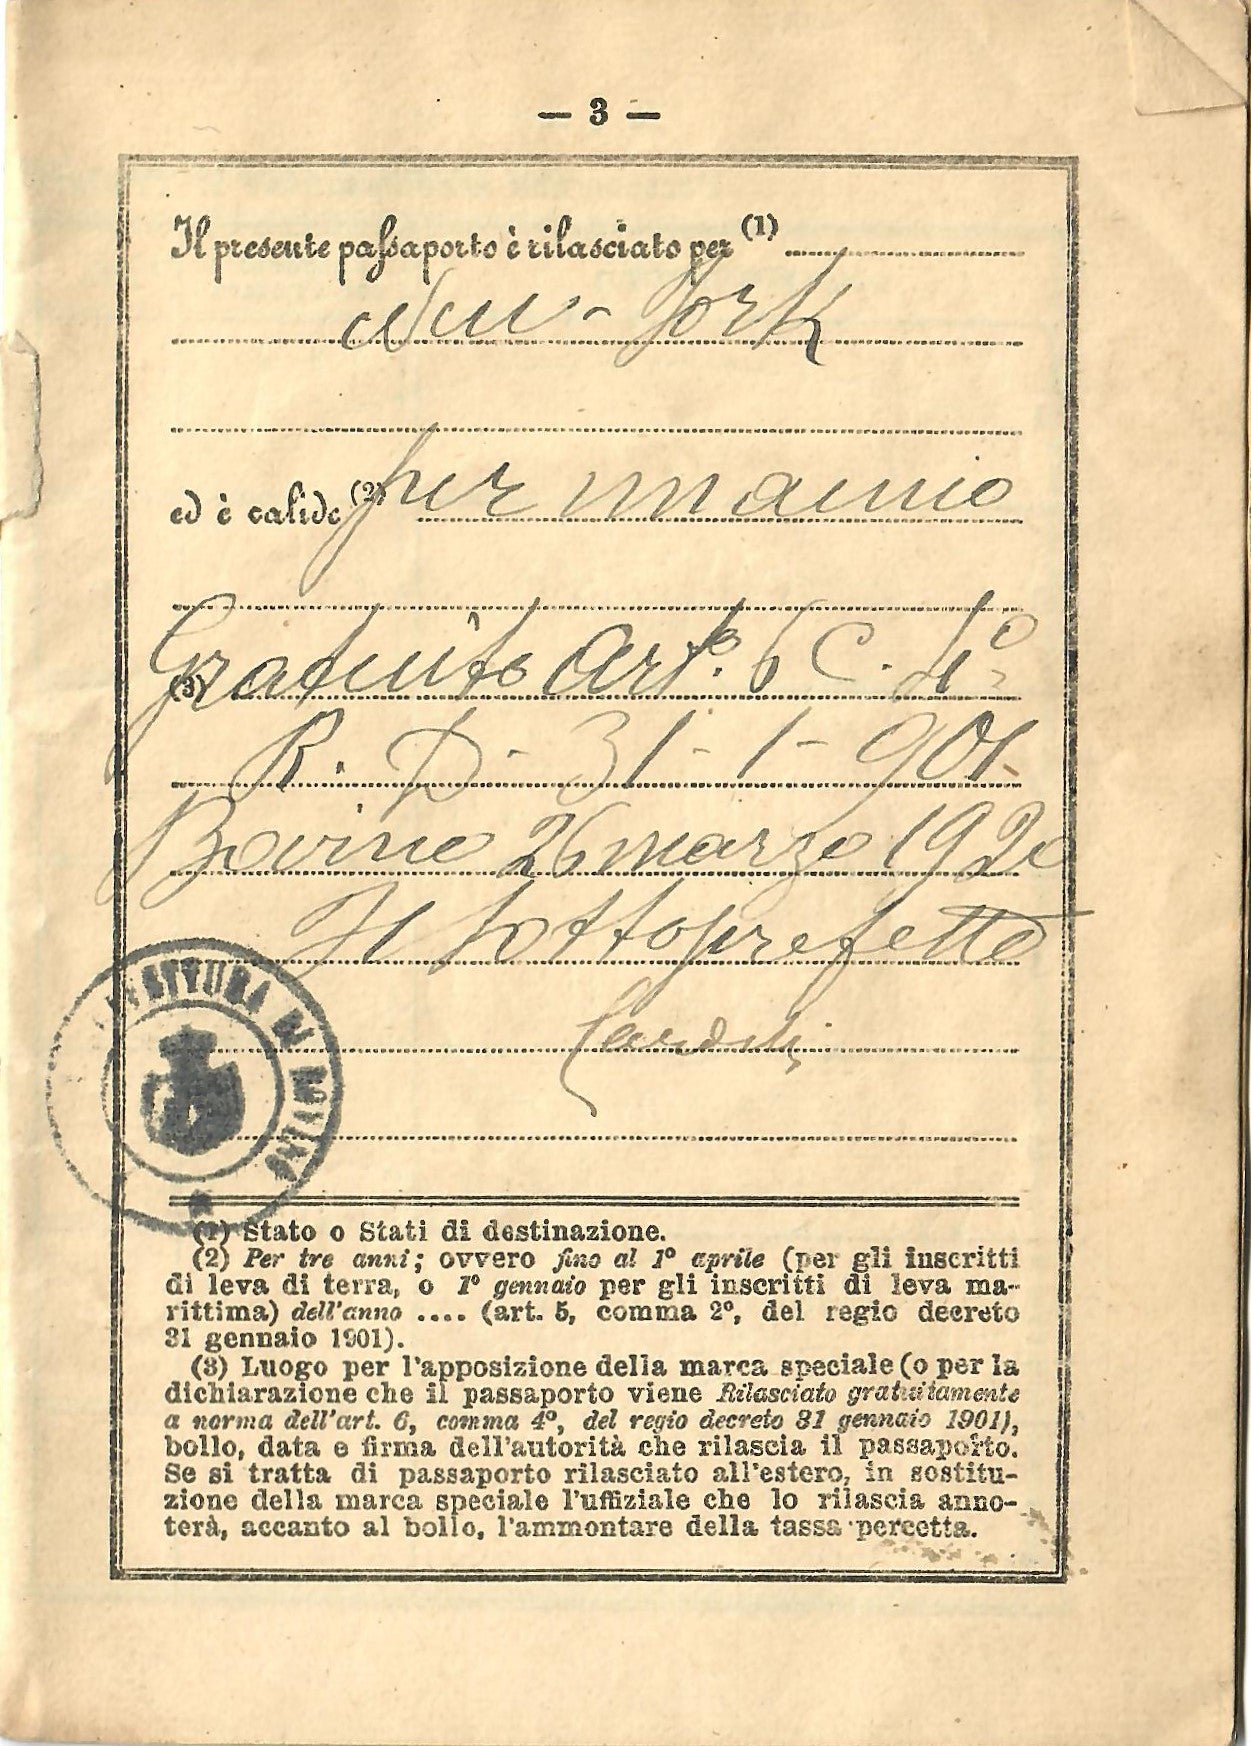 — 3 —
Il presente passaporto è rilasciato per (1)
New-York
ed è valido (2) per un annio
(3) Gratuito Art.º 6 C. 4º
R. D. 31-1-901-
Bovino 26 marzo 1920
Il Sottoprefetto
PREFETTURA DI BOVINO
(1) Stato o Stati di destinazione.
(2) Per tre anni; ovvero fino al 1º aprile (per gli inscritti
di leva di terra, o 1º gennaio per gli inscritti di leva ma-
rittima) dell'anno .... (art. 5, comma 2º, del regio decreto
31 gennaio 1901).
(3) Luogo per l'apposizione della marca speciale (o per la
dichiarazione che il passaporto viene Rilasciato gratuitamente
a norma dell'art. 6, comma 4º, del regio decreto 31 gennaio 1901),
bollo, data e firma dell'autorità che rilascia il passaporto.
Se si tratta di passaporto rilasciato all'estero, in sostitu-
zione della marca speciale l'uffiziale che lo rilascia anno-
terà, accanto al bollo, l'ammontare della tassa percetta.